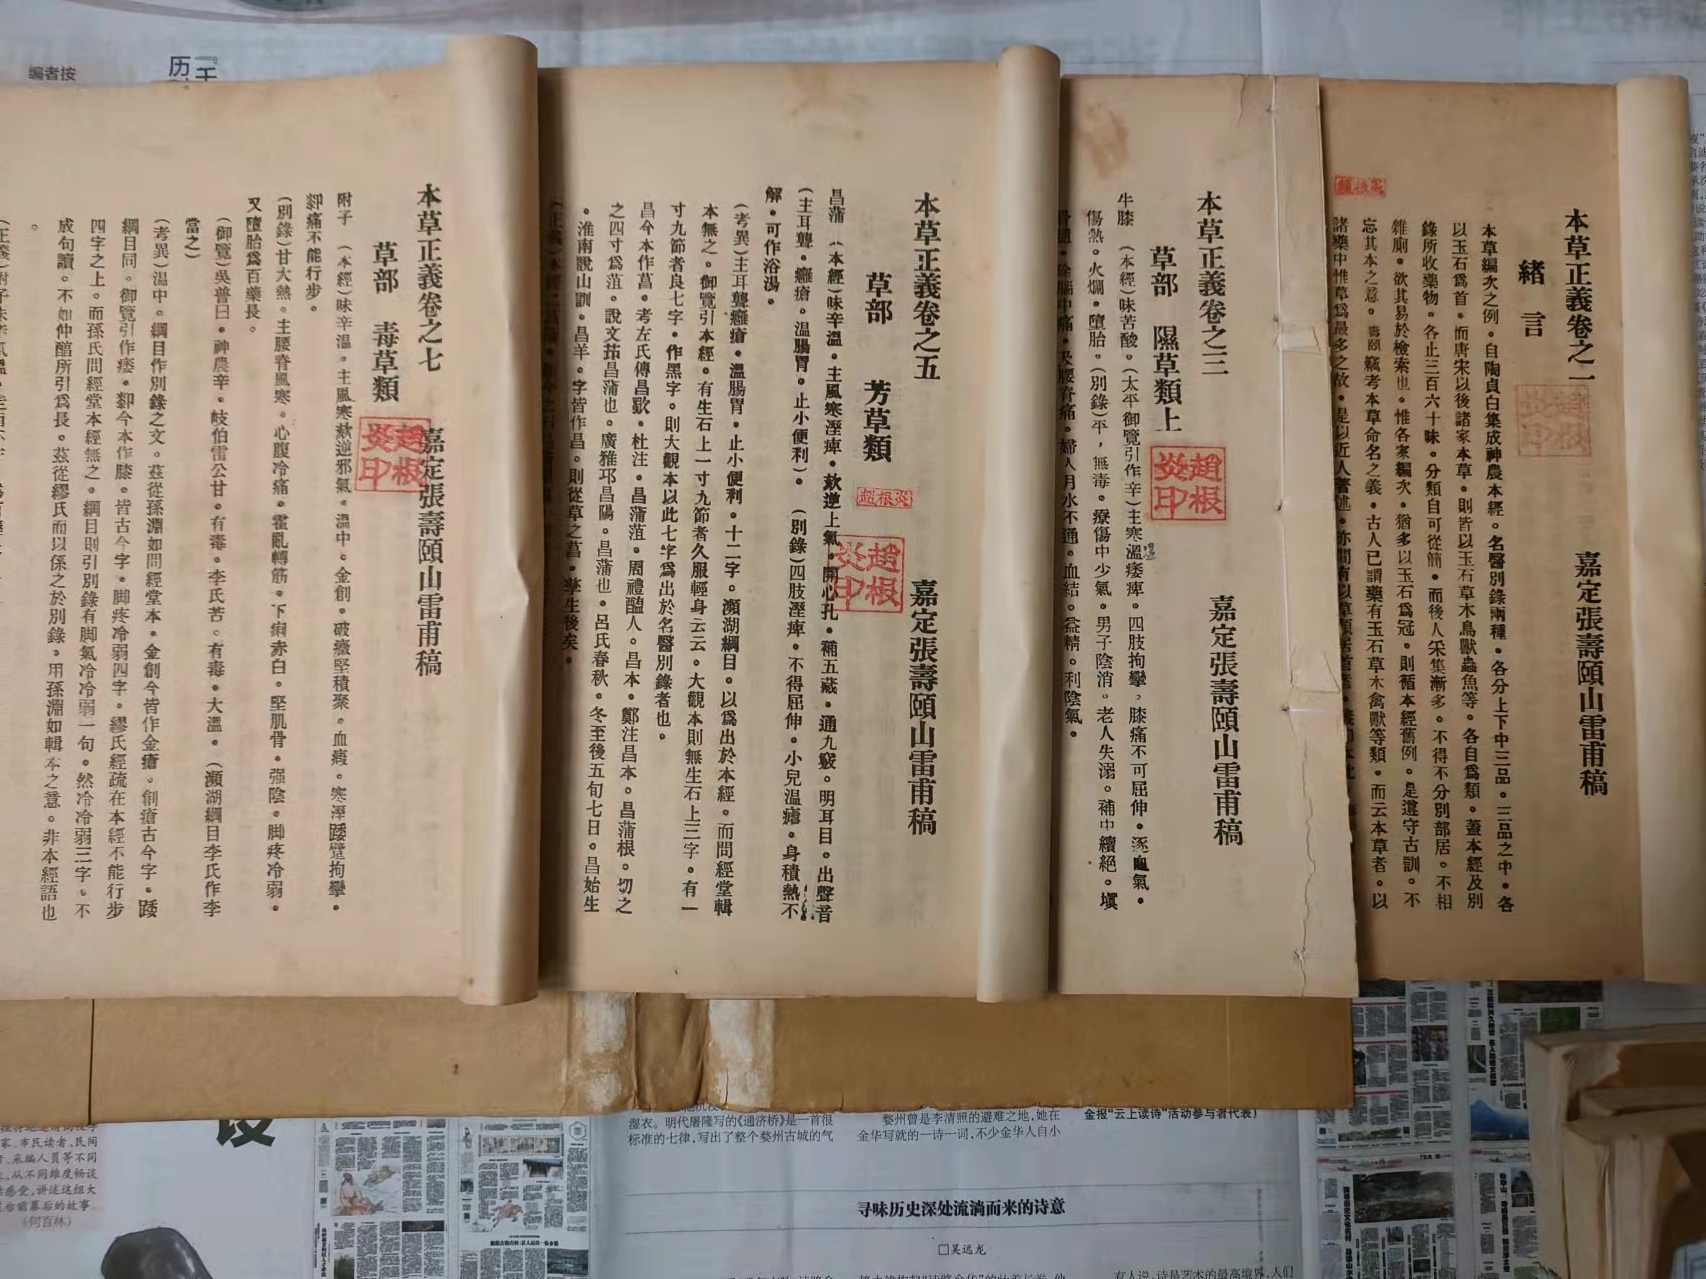 本草正義卷之一
嘉定張壽頤山雷甫稿
緒言
本草編次之例。自陶貞白集成神農本經。名醫別錄兩種。各分上下中三品。三品之中。各
以玉石爲首。而唐宋以後諸家本草。則皆以玉石草木鳥獸蟲魚等。各自爲類。蓋本經及別
錄所收藥物。各止三百六十味。分類自可從簡。而後人采集漸多。不得不分別部居。不相
雜廁。欲其易於檢索也。惟各家編次。猶多以玉石爲冠。則循本經舊例。是遵守古訓。不
忘其本之意。壽頤竊考本草命名之義。古人已謂藥有玉石草木禽獸等類。而云本草者。以
諸藥中惟草爲最多之故。是以近人著述。亦間有以草類居首者。
趙根炎印
本草正義卷之三
嘉定張壽頤山雷甫稿
草部 隰草類上
趙根炎印
牛膝 (本經)味苦酸。(太平御覽引作辛)主寒溫痿痺。四肢拘攣。膝痛不可屈伸。逐血氣。
傷熱。火爛。墮胎。(別錄)平。無毒。療傷中少氣。男子陰消。老人失溺。補中續絕。塡
骨髓。除腦中痛。及腰脊痛。婦人月水不通。血結。益精。利陰氣。
本草正義卷之五
嘉定張壽頤山雷甫稿
草部 芳草類
趙根炎
趙根炎印
昌蒲 (本經)味辛溫。主風寒溼痺。欬逆上氣。開心孔。補五藏。通九竅。明耳目。出聲音
(主耳聾。癰瘡。溫腸胃。止小便利)。(別錄)四肢溼痺。不得屈伸。小兒溫瘧。身積熱不
解。可作浴湯。
(考異)主耳聾癰瘡。溫腸胃。止小便利。十二字。瀕湖綱目。以爲出於本經。而問經堂輯
本無之。御覽引本經。有生石上一寸九節者久服輕身云云。大觀本則無生石上三字。有一
寸九節者良七字。作黑字。則大觀本以此七字爲出於名醫別錄者也。
昌今本作菖。考左氏傳昌歜。杜注。昌蒲菹。周禮醢人。昌本。鄭注昌本。昌蒲根。切之
之四寸爲菹。說文茚昌蒲也。廣雅邛昌陽。昌蒲也。呂氏春秋。冬至後五旬七日。昌始生
。淮南說山訓。昌羊。字皆作昌。則從草之菖。孳生後矣。
本草正義卷之七
嘉定張壽頤山雷甫稿
草部 毒草類
趙根炎印
附子 (本經)味辛溫。主風寒欬逆邪氣。溫中。金創。破癥堅積聚。血瘕。寒溼踒躄拘攣。
䣛痛不能行步。
(別錄)甘大熱。主腰脊風寒。心腹冷痛。霍亂轉筋。下痢赤白。堅肌骨。强陰。脚疼冷弱。
又墮胎爲百藥長。
(御覽)吳普曰。神農辛。岐伯雷公甘。有毒。李氏苦。有毒。大溫。(瀕湖綱目李氏作李
當之)
(考異)溫中。綱目作別錄之文。茲從孫淵如問經堂本。金創今皆作金瘡。創瘡古今字。踒
綱目同。御覽引作痿。䣛今本作膝。皆古今字。脚疼冷弱四字。繆氏經疏在本經不能行步
四字之上。而孫氏問經堂本經無之。綱目則引別錄有脚氣冷冷弱一句。然冷冷弱三字。不
成句讀。不如仲醕所引爲長。茲從繆氏而以係之於別錄。用孫淵如輯本之意。非本經語也
。
编者按
湿衣。明代屠隆写的《通济桥》是一首很
标准的七律，写出了整个婺州古城的气
婺州曾是李清照的避难之地，她在
金华写就的一诗一词，不少金华人自小
金报“云上读诗”活动参与者代表)
寻味历史深处流淌而来的诗意
□吴远龙
家、市民读者、民间
、采编人员等不同
，从不同维度畅谈
感觉，讲述这组大
台前幕后的故事。
(何百林)
有人说，诗是艺术的最高境界，人们